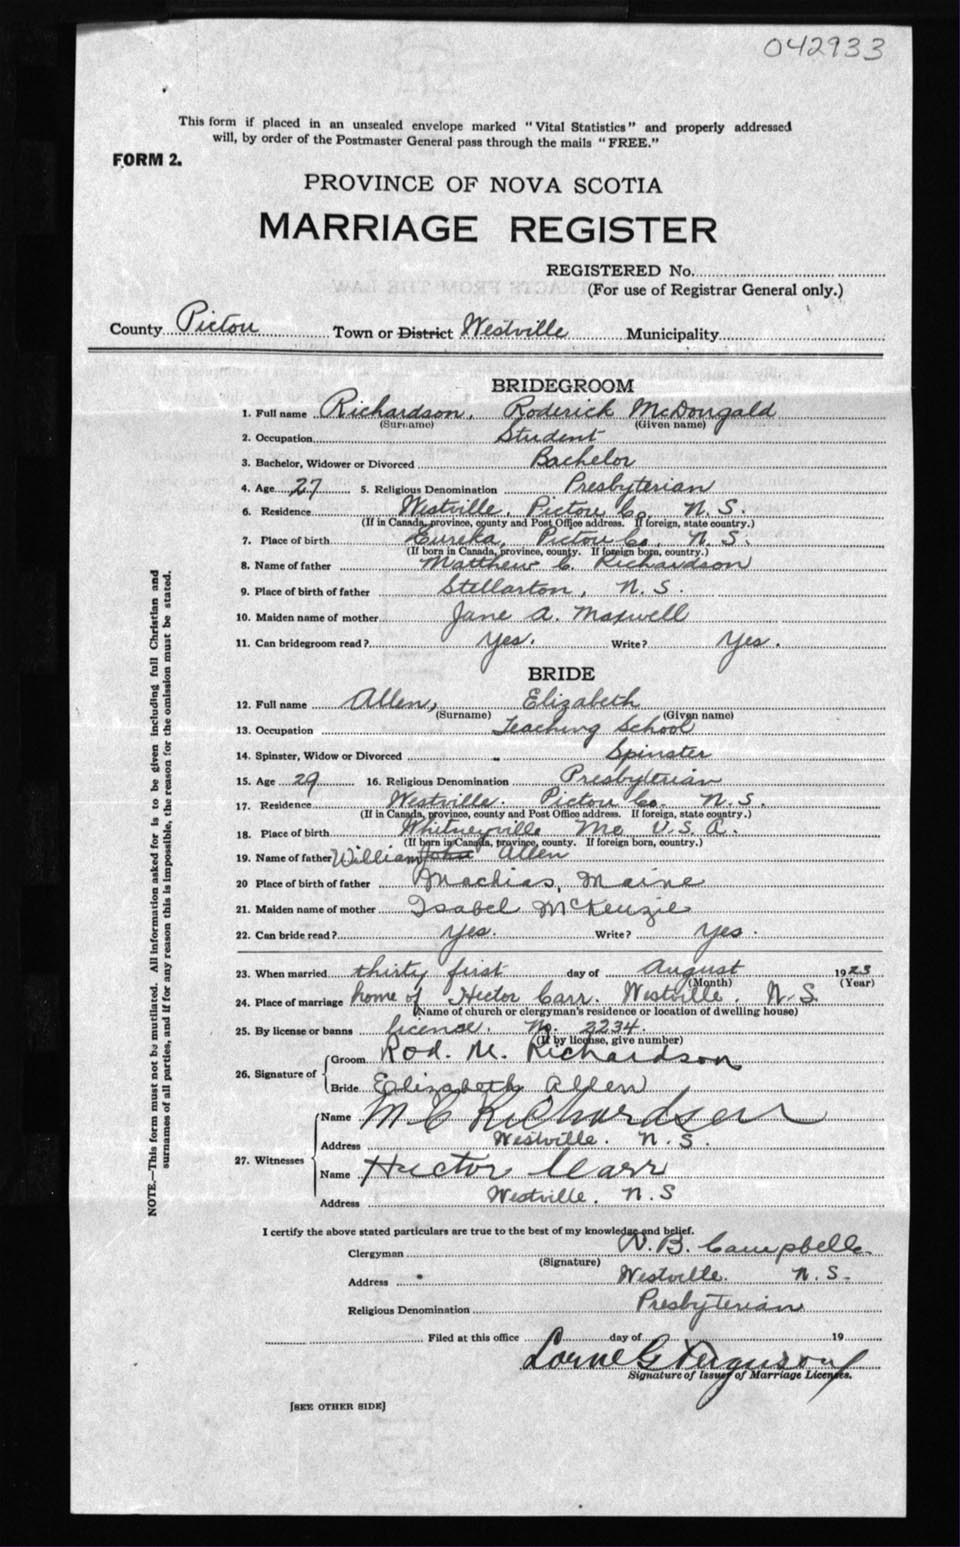 042933
This form if placed in an unsealed envelope marked "Vital Statistics" and properly addressed
will, by order of the Postmaster General pass through the mails "FREE."
FORM 2.
PROVINCE OF NOVA SCOTIA
MARRIAGE REGISTER
REGISTERED No.
(For use of Registrar General only.)
County Pictou Town or District Westville Municipality
BRIDEGROOM
1. Full name Richardson, Roderick McDougald
(Surname) (Given name)
2. Occupation Student
3. Bachelor, Widower or Divorced Bachelor
4. Age 27 5. Religious Denomination Presbyterian
6. Residence Westville, Pictou Co. N.S.
(If in Canada, province, county and Post Office address. If foreign, state country.)
7. Place of birth Eureka, Pictou Co. N.S.
(If born in Canada, province, county. If foreign born, country.)
8. Name of father Matthew C. Richardson
9. Place of birth of father Stellarton, N.S.
10. Maiden name of mother Jane A. Maxwell
11. Can bridegroom read? Yes. Write? Yes.
BRIDE
12. Full name Allen, Elizabeth
(Surname) (Given name)
13. Occupation Teaching School
14. Spinster, Widow or Divorced Spinster
15. Age 29 16. Religious Denomination Presbyterian
17. Residence Westville. Pictou Co. N.S.
(If in Canada, province, county and Post Office address. If foreign, state country.)
18. Place of birth Whitneyville Me U.S.A.
(If born in Canada, province, county. If foreign born, country.)
19. Name of father William John Allen
20 Place of birth of father Machias, Maine
21. Maiden name of mother Isabel McKenzie
22. Can bride read? Yes. Write? Yes.
23. When married thirty first day of August 1923
(Month) (Year)
24. Place of marriage home of Hector Carr. Westville. N.S.
(Name of church or clergyman's residence or location of dwelling house)
25. By license or banns license. No. 2234.
(If by license, give number)
26. Signature of Groom Rod. M. Richardson
Bride Elizabeth Allen
27. Witnesses Name M C Richardson
Address Westville. N.S.
Name Hector Carr
Address Westville. N.S
I certify the above stated particulars are true to the best of my knowledge and belief.
Clergyman N. B. Campbell
(Signature)
Address Westville. N.S.
Religious Denomination Presbyterian
Filed at this office day of 19
Lorne G Ferguson
Signature of Issuer of Marriage Licenses.
[SEE OTHER SIDE]
NOTE.—This form must not be mutilated. All information asked for is to be given including full Christian and
surnames of all parties, and if for any reason this is impossible, the reason for the omission must be stated.